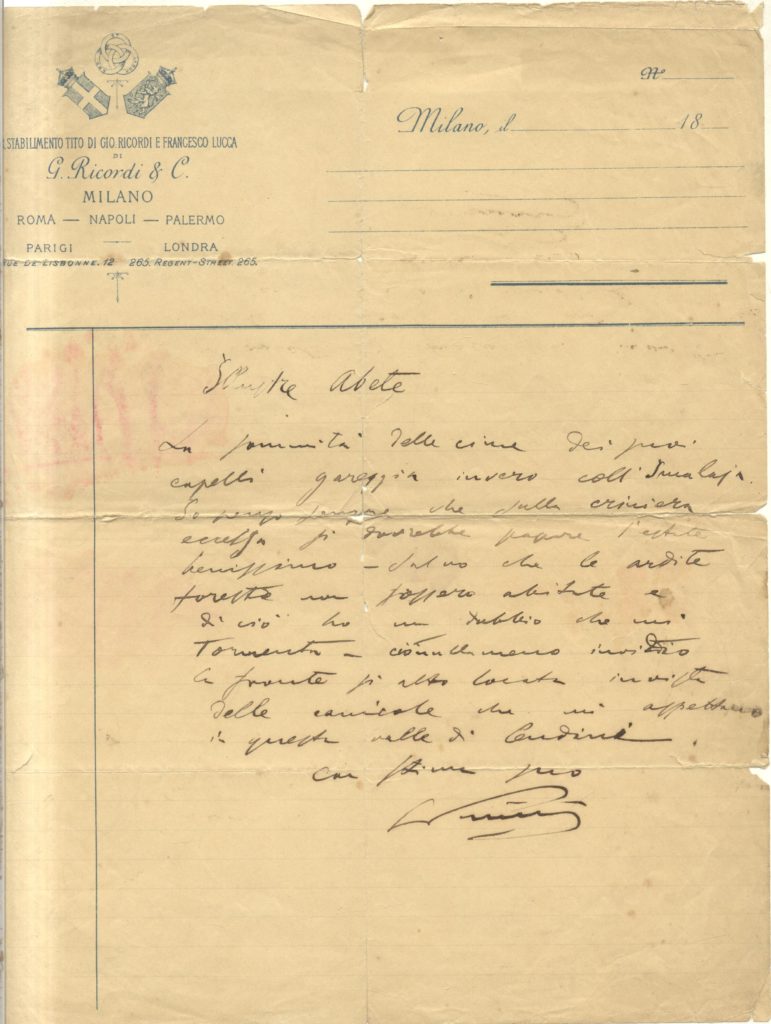 STABILIMENTO TITO DI GIO. RICORDI E FRANCESCO LUCCA
DI
G. Ricordi & C.
MILANO
ROMA — NAPOLI — PALERMO
PARIGI LONDRA
RUE DE LISBONNE. 12 265. REGENT-STREET. 265.
N.
Milano, il 18
Illustre Abete
La sommità delle cime dei suoi
capelli gareggia invero coll'Imalaja.
Io penso che sulla criniera
eccelsa si dovrebbe passare l'estate
benissimo – salvo che le ardite
foreste non fossero abitate e
di ciò ho un dubbio che mi
tormenta – ciònullameno invidio
la fronte sì alto locata in vista
delle canicole che mi aspettano
in questa valle di
con stima suo